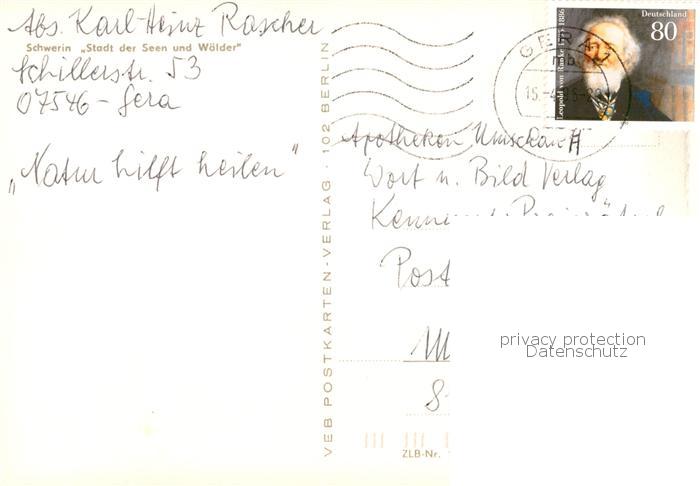 Abs. Karl-Heinz Rascher
Schwerin „Stadt der Seen und Wälder"
Schillerstr. 53
07546 - Gera
„Natur hilft heilen"
VEB POSTKARTEN-VERLAG · 102 BERLIN
Deutschland
80
Leopold von Ranke 1795-1886
GERA
Apotheken Umschau
Wort u. Bild Verlag
Post
privacy protection
Datenschutz
ZLB-Nr.